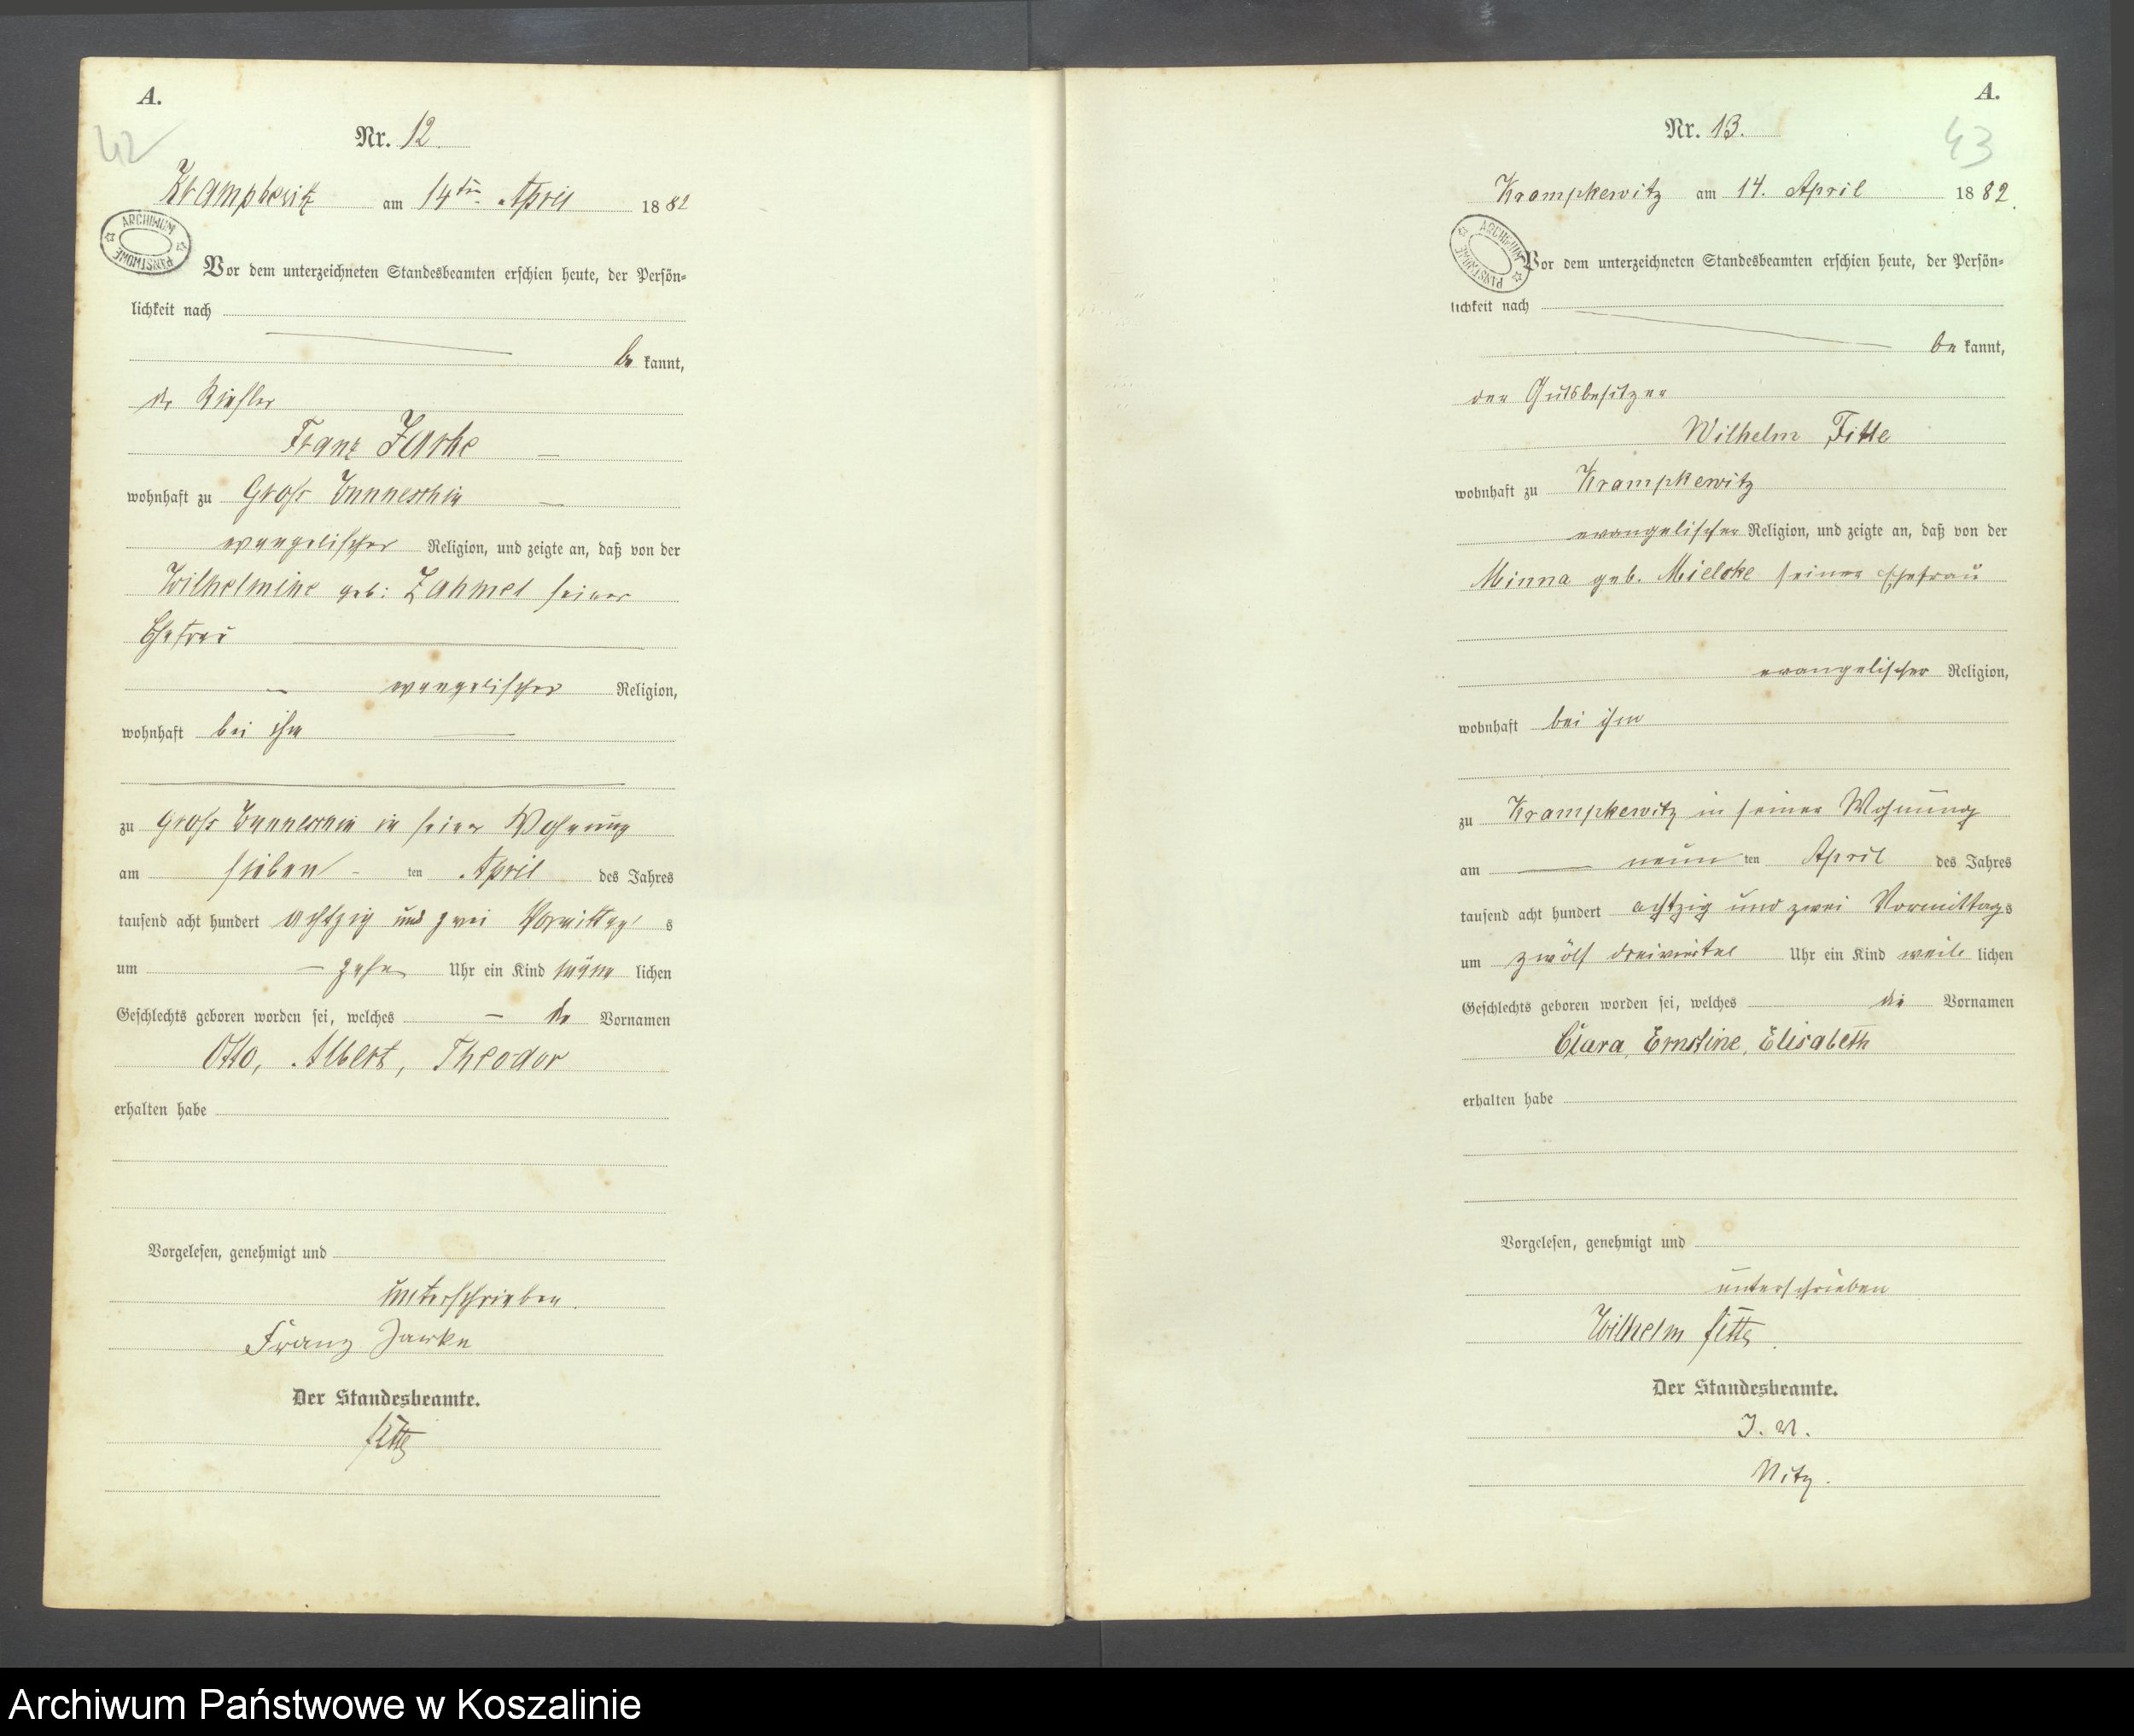 A.
42
Nr. 12
Krampkewitz am 14ten April 1882
ARCHIWUM PAŃSTWOWE
Vor dem unterzeichneten Standesbeamten erschien heute, der Persön-
lichkeit nach
be kannt,
der
Franz Jarke
wohnhaft zu Groß Wunneschin
evangelischer Religion, und zeigte an, daß von der
Wilhelmine geb: Zahmel seiner
Ehefrau
evangelischer Religion,
wohnhaft bei ihm
zu Groß Wunneschin in seiner Wohnung
am sieben ten April des Jahres
tausend acht hundert achtzig und zwei Vormittag s
um zehn Uhr ein Kind männ lichen
Geschlechts geboren worden sei, welches die Vornamen
Otto, Albert, Theodor
erhalten habe
Vorgelesen, genehmigt und
unterschrieben.
Franz Jarke
Der Standesbeamte.
Fitte
A.
43
Nr. 13.
Krampkewitz am 14. April 1882.
ARCHIWUM PAŃSTWOWE
Vor dem unterzeichneten Standesbeamten erschien heute, der Persön-
lichkeit nach
be kannt,
der Gutsbesitzer
Wilhelm Fitte
wohnhaft zu Krampkewitz
evangelischer Religion, und zeigte an, daß von der
Minna geb. Mielcke seiner Ehefrau
evangelischer Religion,
wohnhaft bei ihm
zu Krampkewitz in seiner Wohnung
am neun ten April des Jahres
tausend acht hundert achtzig und zwei Vormittags
um zwölf dreiviertel Uhr ein Kind weib lichen
Geschlechts geboren worden sei, welches die Vornamen
Clara, Ernstine, Elisabeth
erhalten habe
Vorgelesen, genehmigt und
unterschrieben
Wilhelm Fitte.
Der Standesbeamte.
I. V.
Nitz.
Archiwum Państwowe w Koszalinie